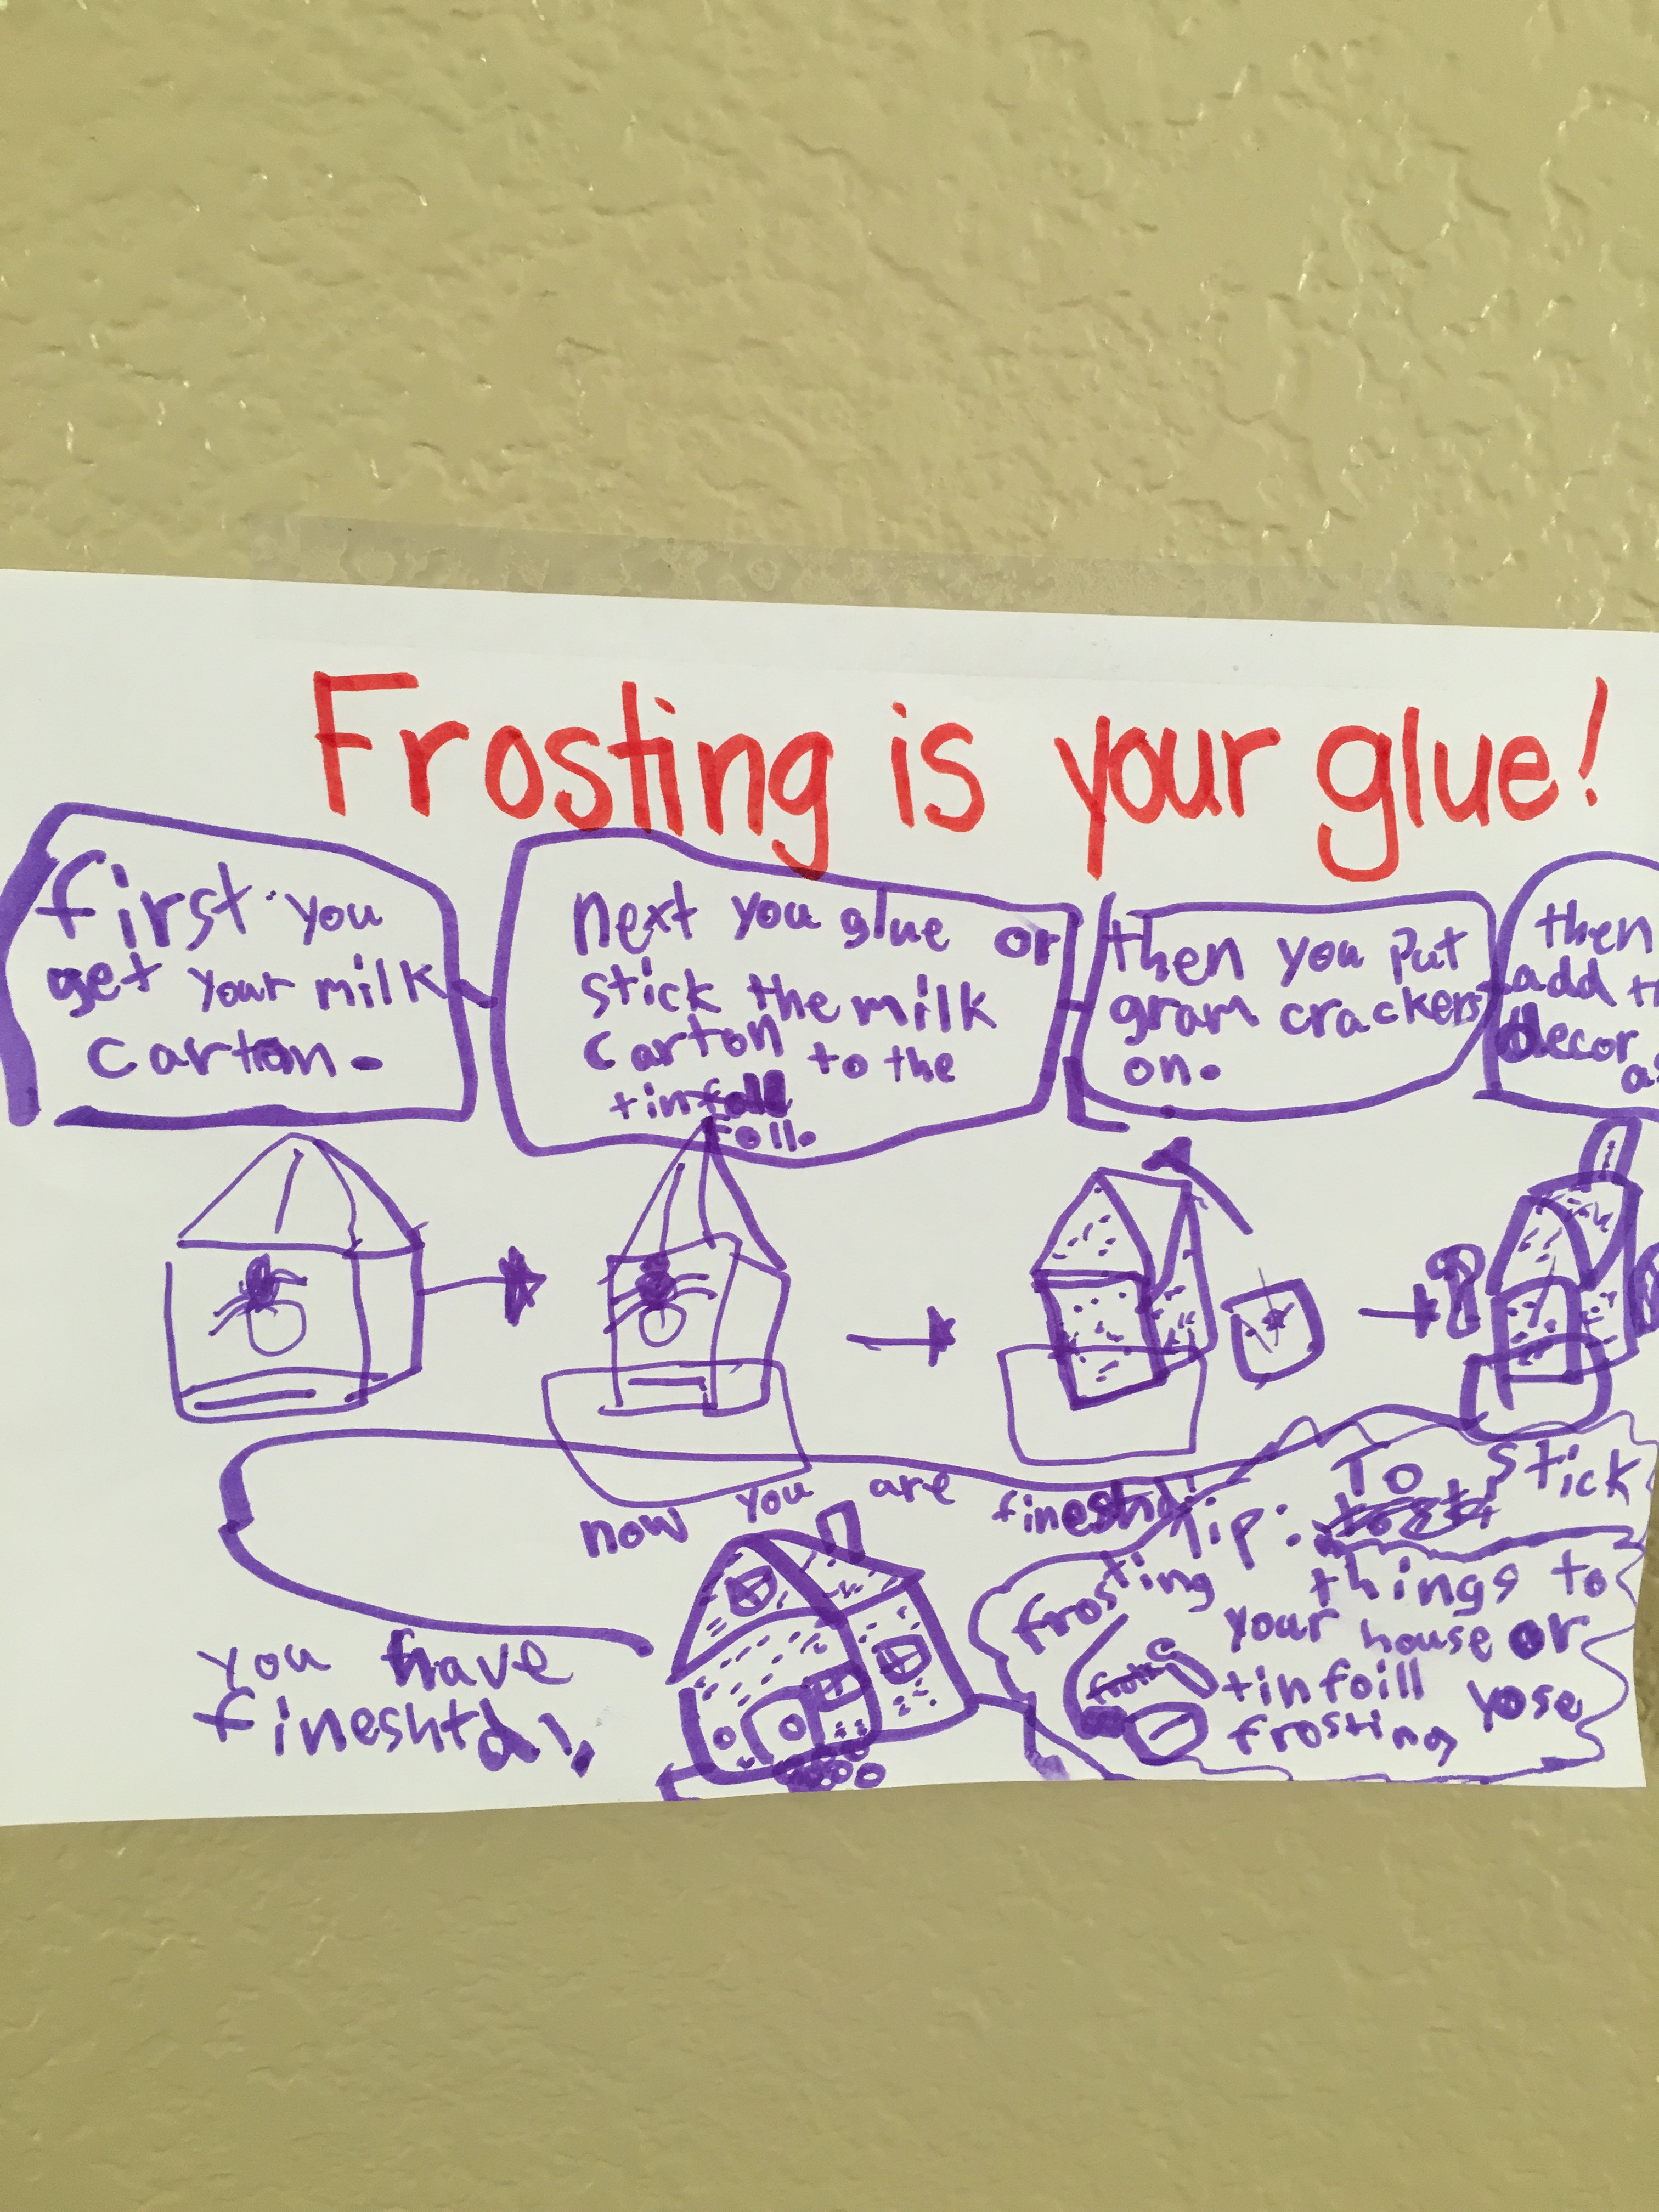 Frosting is your glue!
first you
get your milk
carton.
next you glue or
stick the milk
carton to the
tinfoll
foll.
then you put
gram crackers
on.
then
add
decor
now you are fineshd!
you have
fineshtd!
Tip: To stick
frosting things to
your house or
tinfoill yose
frosting